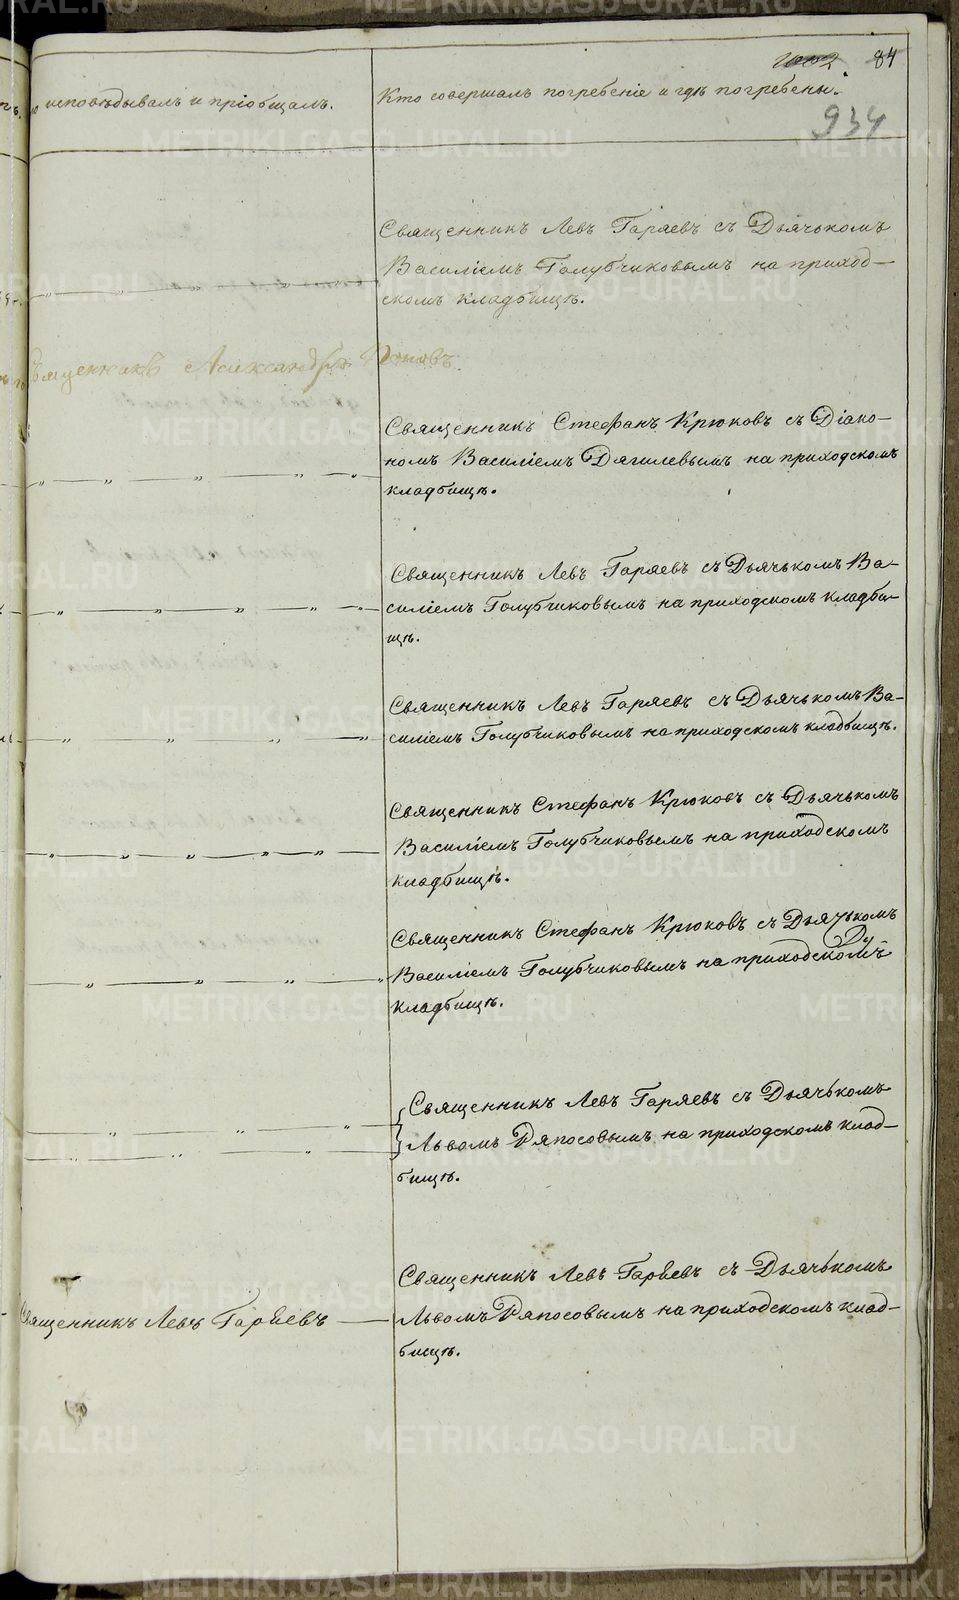 84
исповѣдывалъ и пріобщалъ.
Кто совершалъ погребеніе и гдѣ погребены.
934
Священникъ Левъ Гаряевъ съ Дьячькомъ
Василіемъ Голубчиковымъ на приход-
скомъ кладбищѣ.
Священникъ Александръ Поповъ
Священникъ Стефанъ Крюковъ съ Діако-
номъ Василіемъ Дягилевымъ на приходскомъ
кладбищѣ.
Священникъ Левъ Гаряевъ съ Дьячькомъ Ва-
силіемъ Голубчиковымъ на приходскомъ кладби-
щѣ.
Священникъ Левъ Гаряевъ съ Дьячькомъ Ва-
силіемъ Голубчиковымъ на приходскомъ кладбищѣ.
Священникъ Стефанъ Крюковъ съ Дьячькомъ
Василіемъ Голубчиковымъ на приходскомъ
кладбищѣ.
Священникъ Стефанъ Крюковъ съ Дьячькомъ
Василіемъ Голубчиковымъ на приходскомъ
кладбищѣ.
Священникъ Левъ Гаряевъ съ Дьячькомъ
Львомъ Ряпосовымъ на приходскомъ клад-
бищѣ.
Священникъ Левъ Гаряевъ съ Дьячькомъ
Священникъ Левъ Гаряевъ
Львомъ Ряпосовымъ на приходскомъ клад-
бищѣ.
METRIKI.GASO-URAL.RU